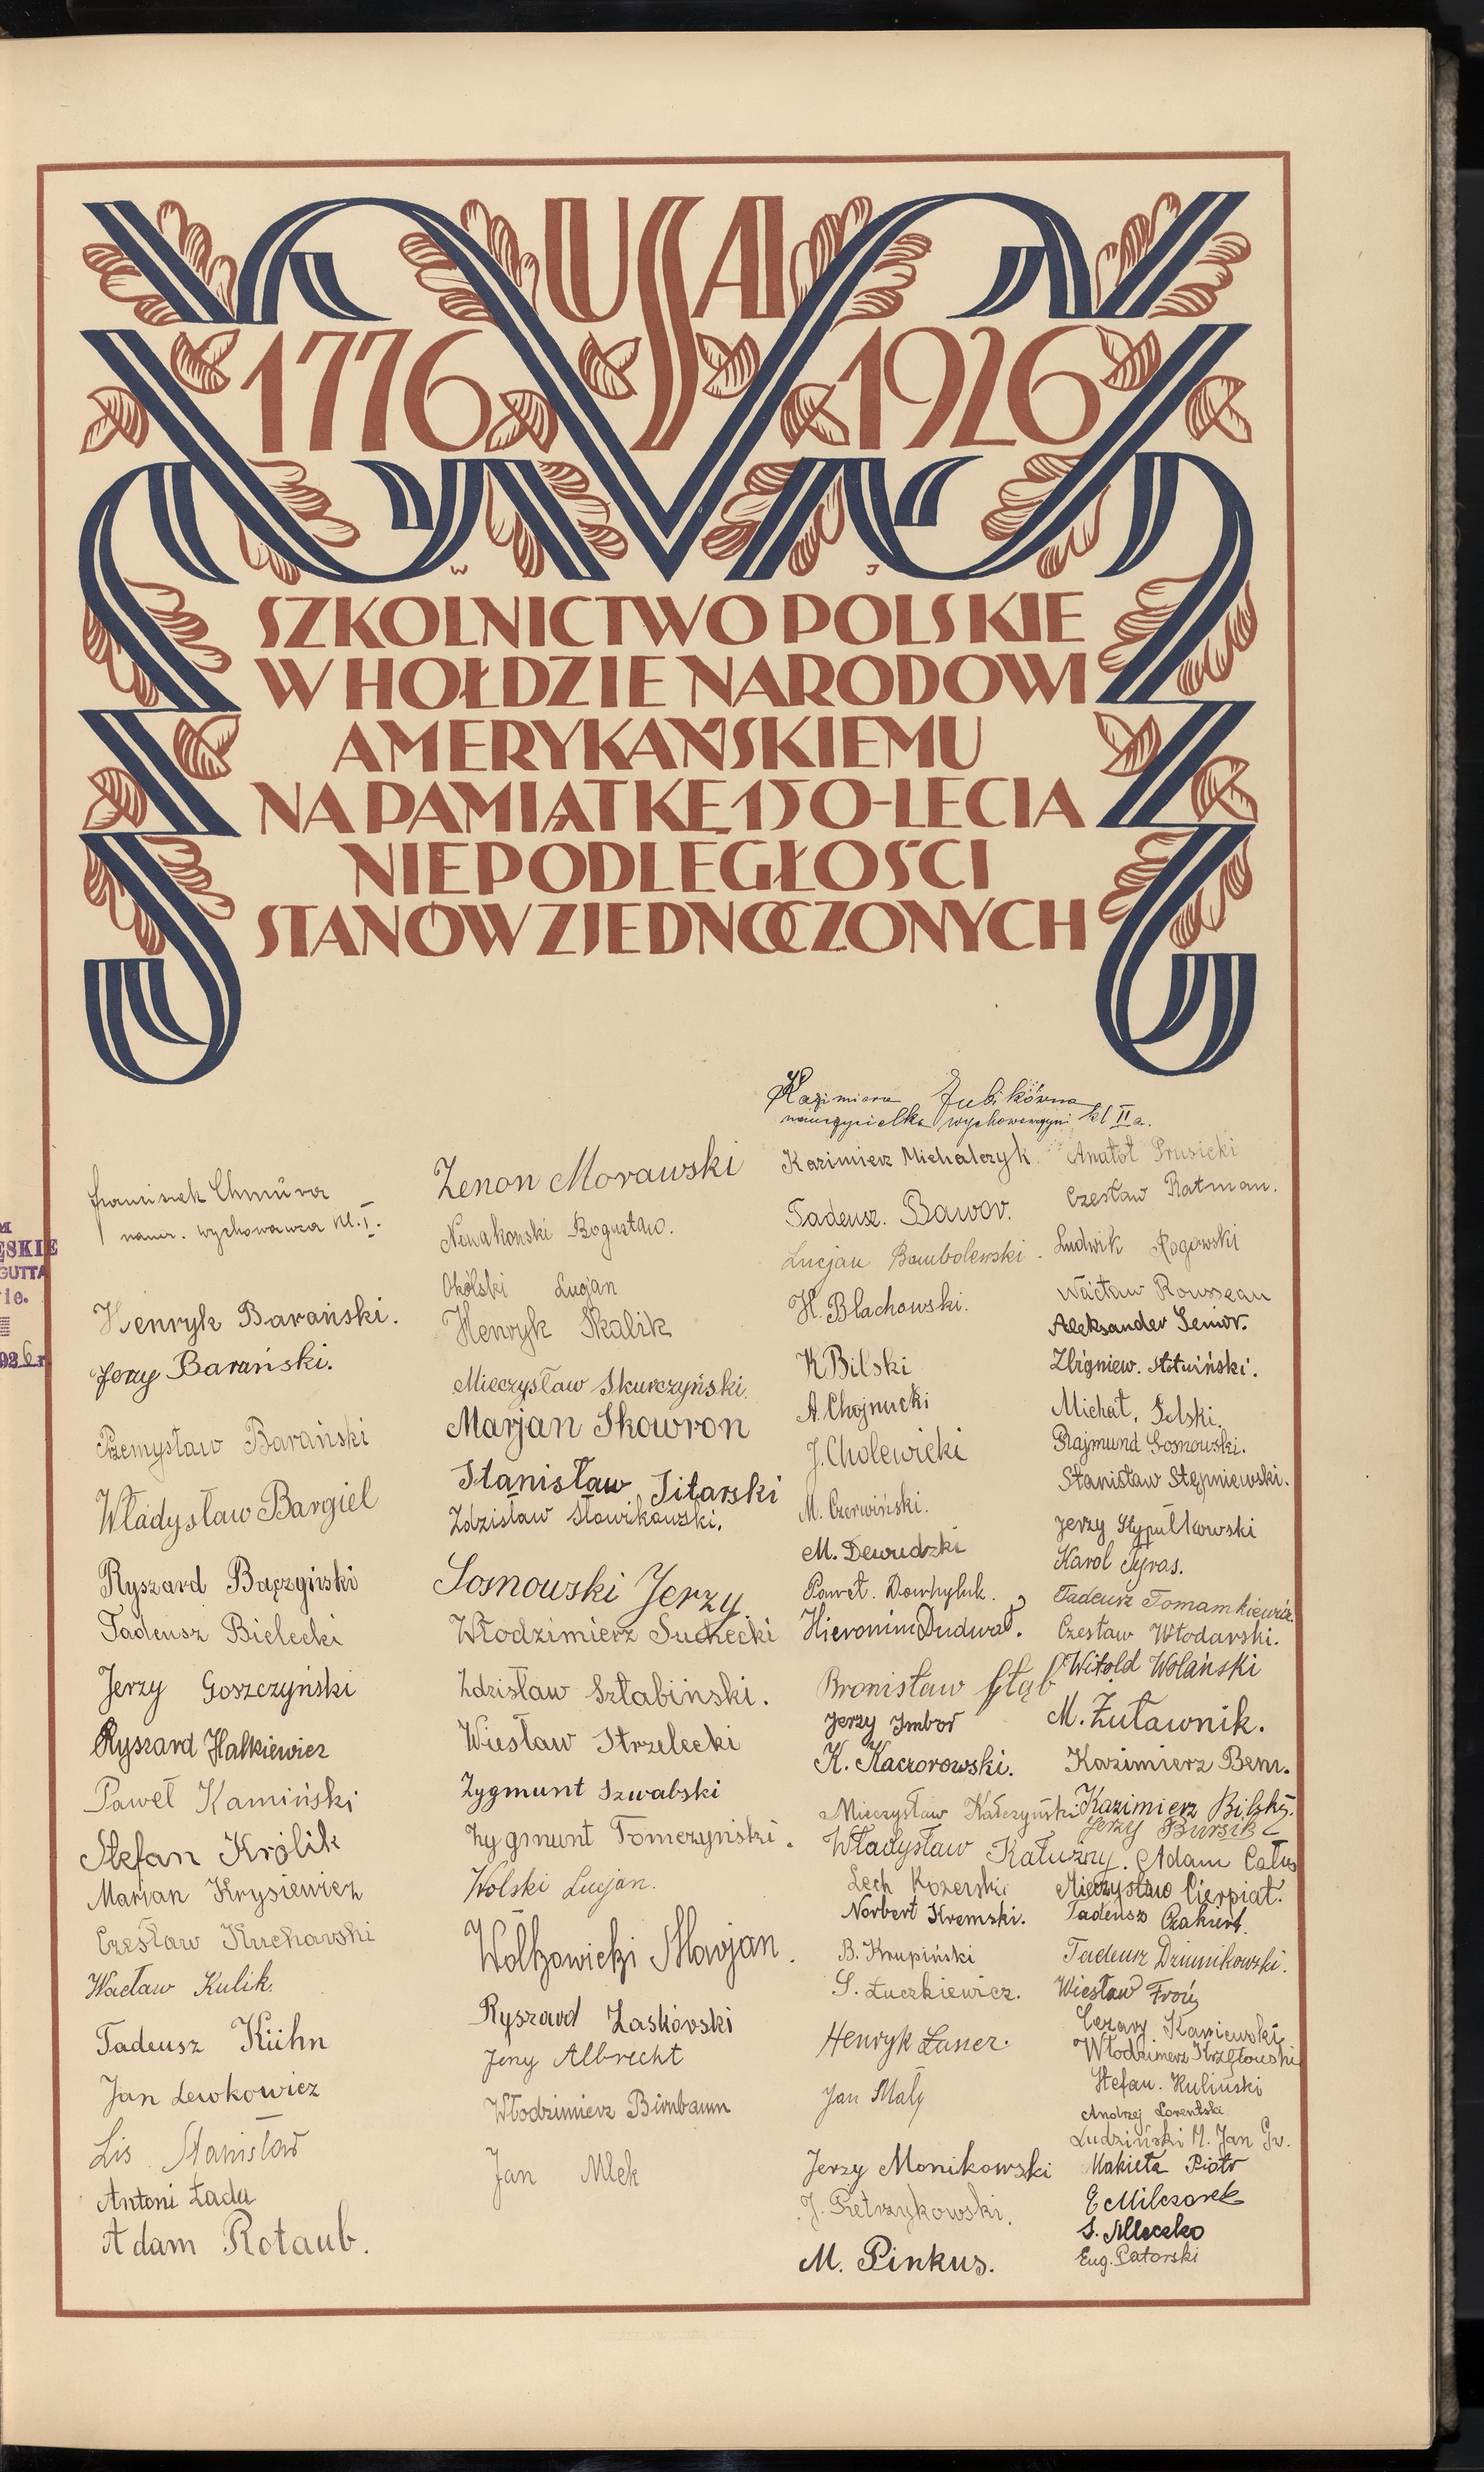 USA
1776 1926
W J
SZKOLNICTWO POLSKIE
W HOŁDZIE NARODOWI
AMERYKAŃSKIEMU
NA PAMIĄTKĘ 150-LECIA
NIEPODLEGŁOŚCI
STANÓW ZJEDNOCZONYCH
Franciszek Chmura
naucz. wychowawca kl. I.
M
ĘSKIE
GUTTA
ie.
926 r.
Henryk Barański.
Jerzy Barański.
Przemysław Barański
Władysław Bargieł
Ryszard Bączyński
Tadeusz Bielecki
Jerzy Goszczyński
Ryszard Halkiewicz
Paweł Kamiński
Stefan Królik
Marian Krysiewicz
Czesław Kucharski
Wacław Kulik.
Tadeusz Kühn
Jan Lewkowicz
Lis Stanisław
Antoni Łada
Adam Rotaub.
Zenon Morawski
Nowakowski Bogusław.
Okólski Lucjan
Henryk Skalik
Mieczysław Skurczyński.
Marjan Skowron
Stanisław Sitarski
Zdzisław Słowikowski.
Sosnowski Jerzy
Włodzimierz Suchecki
Zdzisław Sztabiński.
Wiesław Strzelecki
Zygmunt Szwabski
Zygmunt Tomczyński.
Wolski Lucjan.
Wółkowicki Marjan.
Ryszard Zaskórski
Jerzy Albrecht
Włodzimierz Birnbaum
Jan Mlek
Kazimiera Zubikówna
nauczycielka wychowawczyni kl II a.
Kazimierz Michalczyk
Tadeusz. Bawor.
Lucjan Bombolewski.
H. Blachowski.
K Bilski
A. Chojnucki
J. Cholewicki
M. Czerwiński.
M. Dewudzki
Paweł. Dowhyluk.
Hieronim Dudwał.
Bronisław Głąb
Jerzy Imbor
K. Kaczorowski.
Mieczysław Kałczyński
Władysław Kałużny.
Lech Kozerski
Norbert Kremski.
B. Krupiński
S. Łuczkiewicz.
Henryk Łaner.
Jan Mały
Jerzy Monikowski
J. Pietrzykowski.
M. Pinkus.
Anatol Prusicki
Czesław Ratman.
Ludwik Rogowski
Wacław Rousseau
Aleksander Senior.
Zbigniew.
Michał. Solski.
Rajmund Sosnowski.
Stanisław Stępniewski.
Jerzy Stypułkowski
Karol Tyras.
Tadeusz Tomamkiewicz.
Czesław Włodarski.
Witold Wolański
M. Żuławnik.
Kazimierz Bem.
Kazimierz Bilski.
Jerzy Bursik
Adam Całus
Mieczysław Cierpiał.
Tadeusz Czakiert.
Tadeusz Dziunikowski.
Wiesław Froń
Cezary Kaniewski
Włodzimierz Krzętowski
Stefan. Kuliński
Andrzej Lorentski
Ludziński M. Jan Gw.
Makieła Piotr
E Milczarek
S. Mleczko
Eug. Patorski